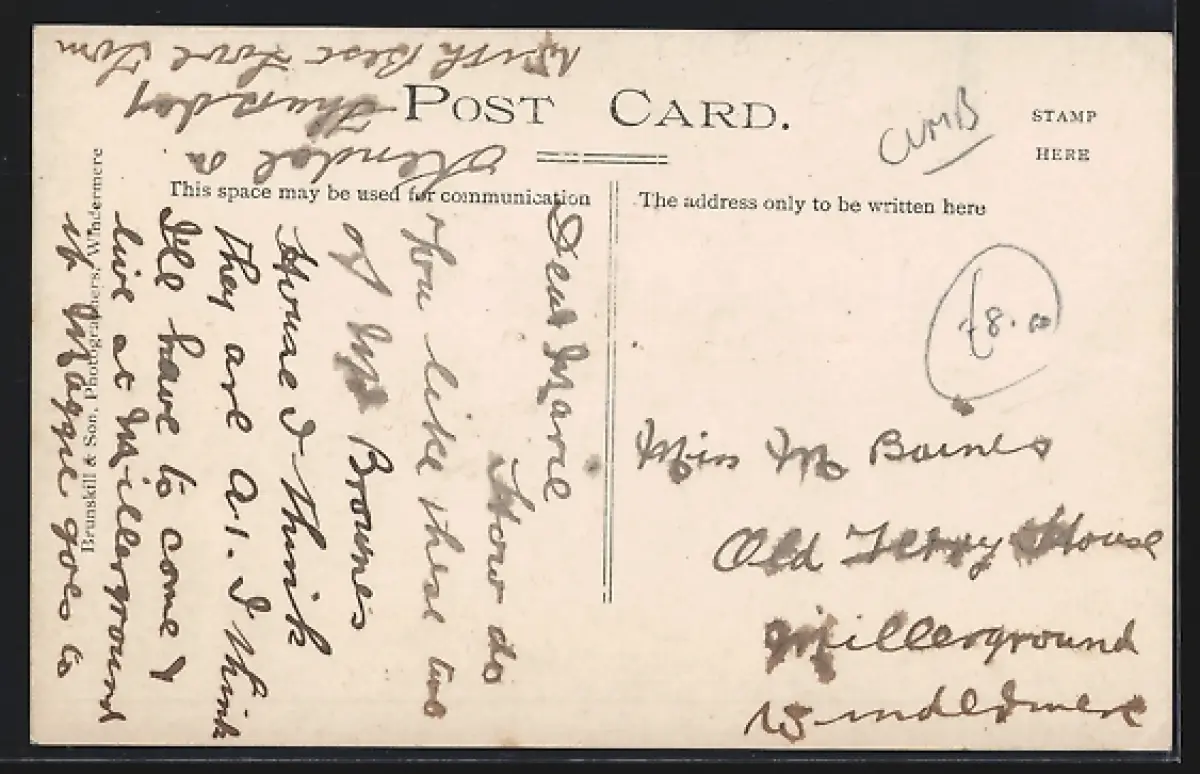 POST CARD.
CUMB
STAMP
HERE
This space may be used for communication
The address only to be written here
Brunskill & Son. Photographers, Windermere
£8.00
Dear Marie
How do
you like these two
of Mr Browne's
House I think
they are A.1. I think
I'll have to come &
live at Millerground
if Maggie goes to
Kendal on
Thursday
With Best Love Tom
Miss M Baines
Old Ferry House
Millerground
Windermere